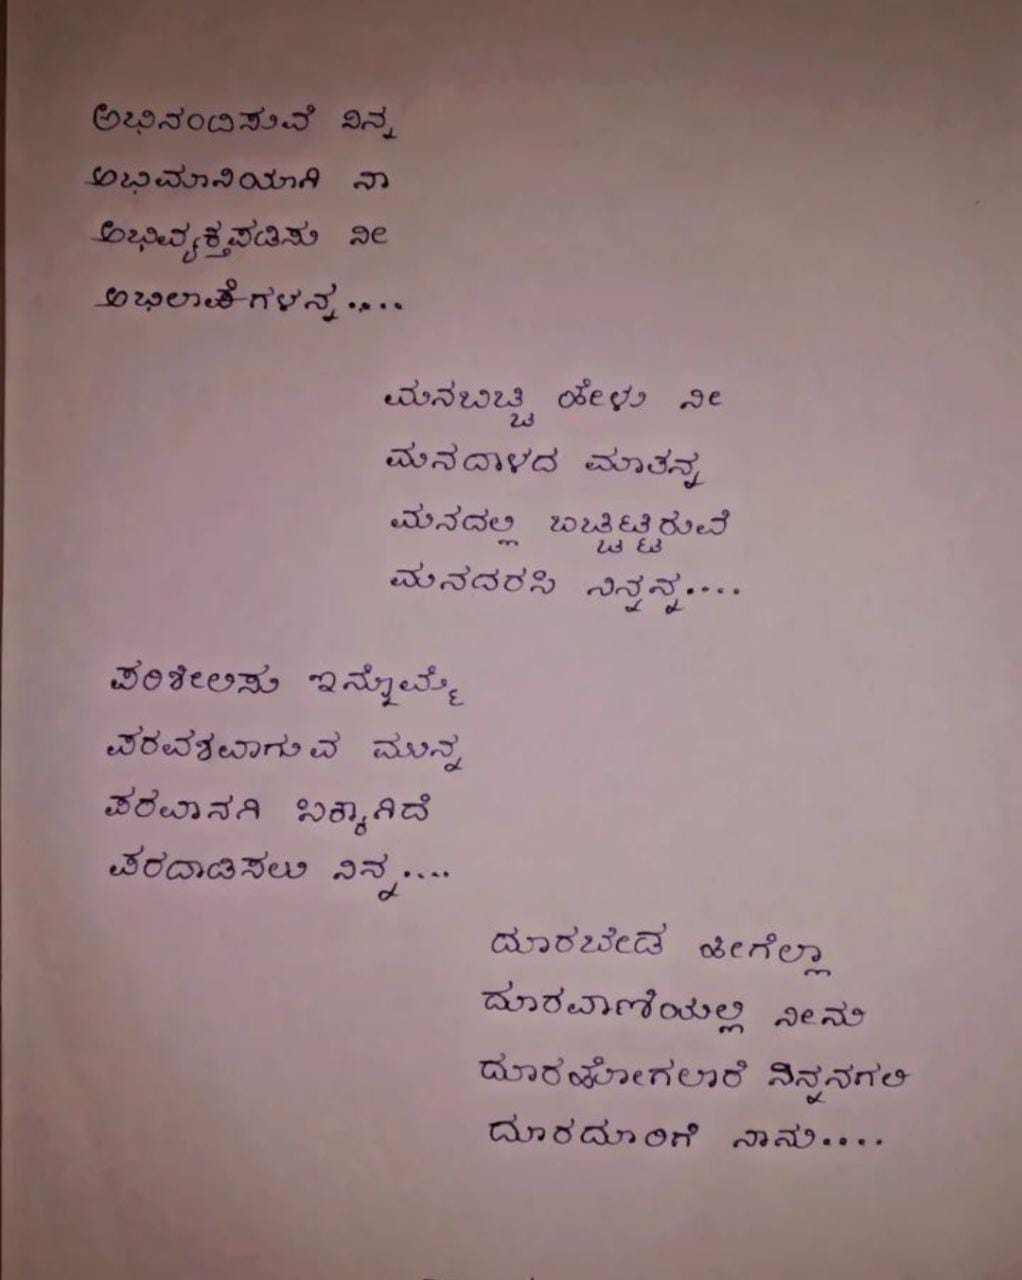 ಅಭಿನಂದಿಸುವೆ ನಿನ್ನ
ಅಭಿಮಾನಿಯಾಗಿ ನಾ
ಅಭಿವ್ಯಕ್ತಪಡಿಸು ನೀ
ಅಭಿಲಾಷೆಗಳನ್ನ....
ಮನಬಿಚ್ಚಿ ಹೇಳು ನೀ
ಮನದಾಳದ ಮಾತನ್ನ
ಮನದಲ್ಲಿ ಬಚ್ಚಿಟ್ಟಿರುವೆ
ಮನದರಸಿ ನಿನ್ನನ್ನ....
ಪರಿಶೀಲಿಸು ಇನ್ನೊಮ್ಮೆ
ಪರವಶವಾಗುವ ಮುನ್ನ
ಪರವಾನಗಿ ಬಕ್ಕಾಗಿದೆ
ಪರದಾಡಿಸಲು ನಿನ್ನ....
ದೂರಬೇಡ ಹೀಗೆಲ್ಲಾ
ದೂರವಾಣಿಯಲ್ಲಿ ನೀನು
ದೂರಹೋಗಲಾರೆ ನಿನ್ನನಗಲಿ
ದೂರದೂರಿಗೆ ನಾನು....